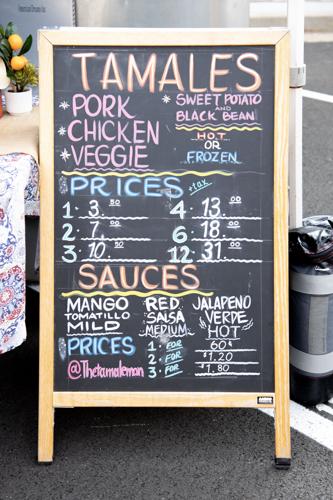 TAMALES
*PORK
*CHICKEN
*VEGGIE
*SWEET POTATO
AND
BLACK BEAN
HOT
OR
FROZEN
PRICES +tax
1. 3.50 4. 13.00
2. 7.00 6. 18.00
3. 10.50 12. 31.00
SAUCES
MANGO
TOMATILLO
MILD
RED
SALSA
MEDIUM
JALAPENO
VERDE
HOT
PRICES
1. FOR 60¢
2. FOR $1.20
3. FOR $1.80
@Thetamaleman